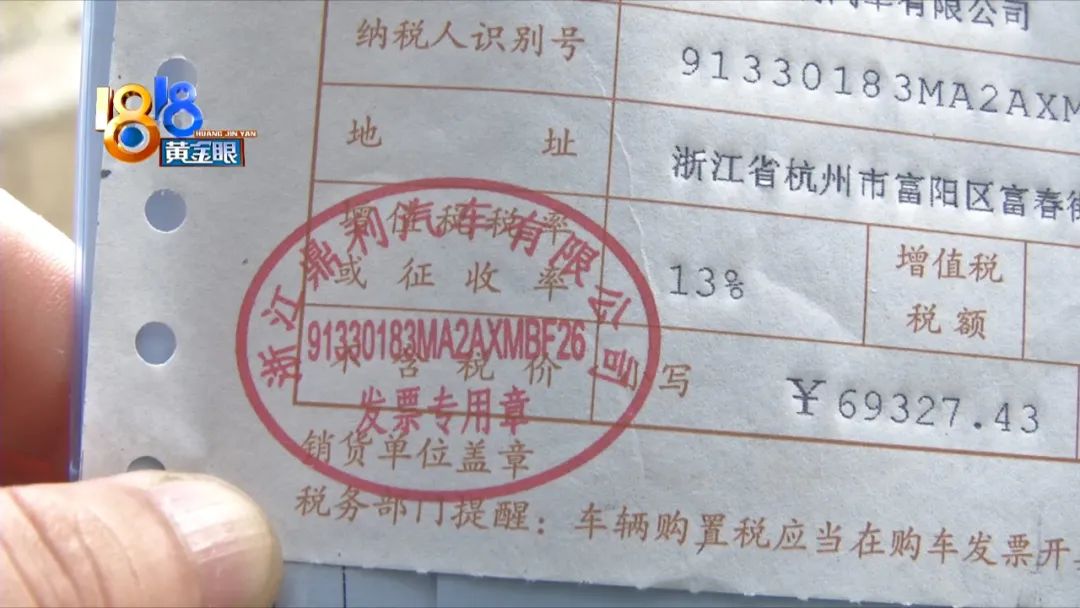 汽车有限公司
纳税人识别号
91330183MA2AXM
1818
HUANG JIN YAN
黄金眼
地 址
浙江省杭州市富阳区富春街
增值税税率
或征收率
13%
增值税
税额
浙江鼎利汽车有限公司
91330183MA2AXMBF26
发票专用章
不含税价
小写
¥69327.43
销货单位盖章
税务部门提醒：车辆购置税应当在购车发票开